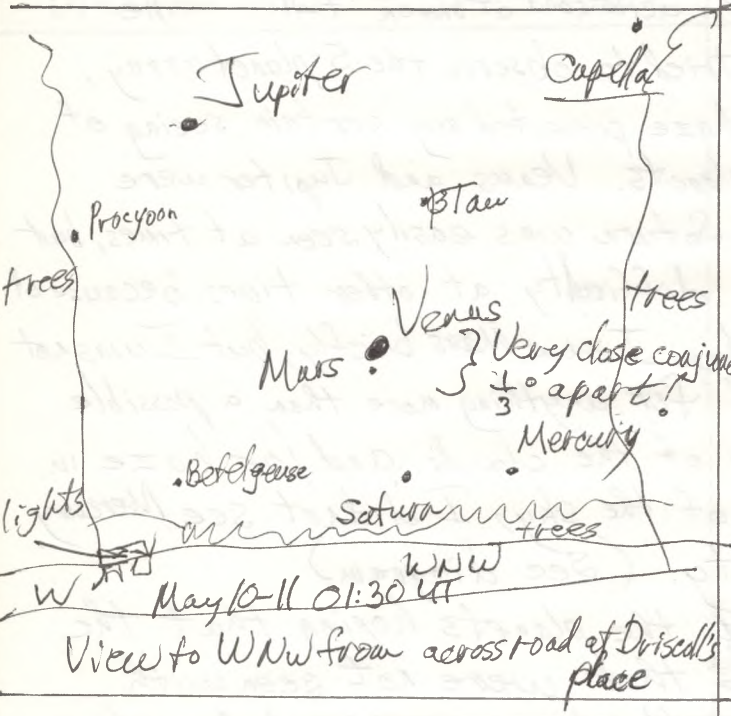 Jupiter
Capella
Procyoon
βTau
trees
trees
Venus
Mars
} Very close conjunc
1/3° apart!
Mercury
Betelgeuse
lights
Saturn
trees
W
WNW
May 10-11 01:30 UT
View to WNW from across road at Driscoll's
place